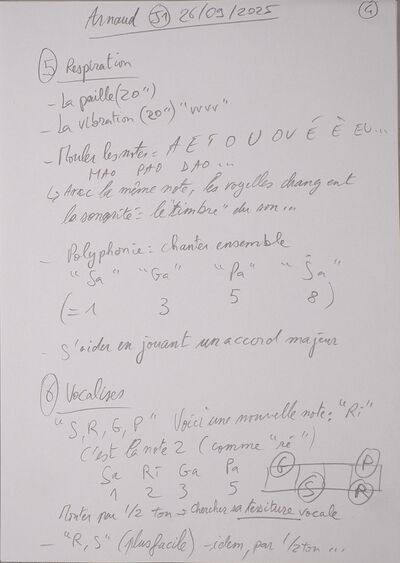 Arnaud S1 26/09/2025 4
5 Respiration
- La paille (20")
- La vibration (20") "vvvv"
- Mouler les notes = A E I O U OU É È EU...
MAO PAO DAO ...
↳ Avec la même note, les voyelles changent
la sonorité = le "timbre" du son ...
- Polyphonie = chanter ensemble
"Sa" "Ga" "Pa" "Ṡa"
(= 1 3 5 8)
- S'aider en jouant un accord majeur
6 Vocalises
"S, R, G, P" Voici une nouvelle note : "Ri"
C'est la note 2 (comme "ré")
Sa Ri Ga Pa
1 2 3 5
G P
S R
Monter par 1/2 ton → Chercher sa tessiture vocale
- "R, S" (plus facile) - idem, par 1/2 ton ...